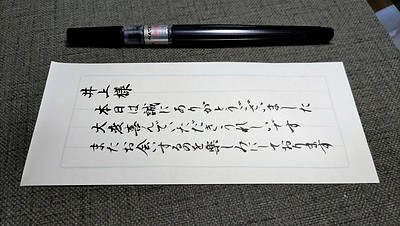 井上様
本日は誠にありがとうございました
大変喜んでいただきうれしいです
またお会いするのを楽しみにしております